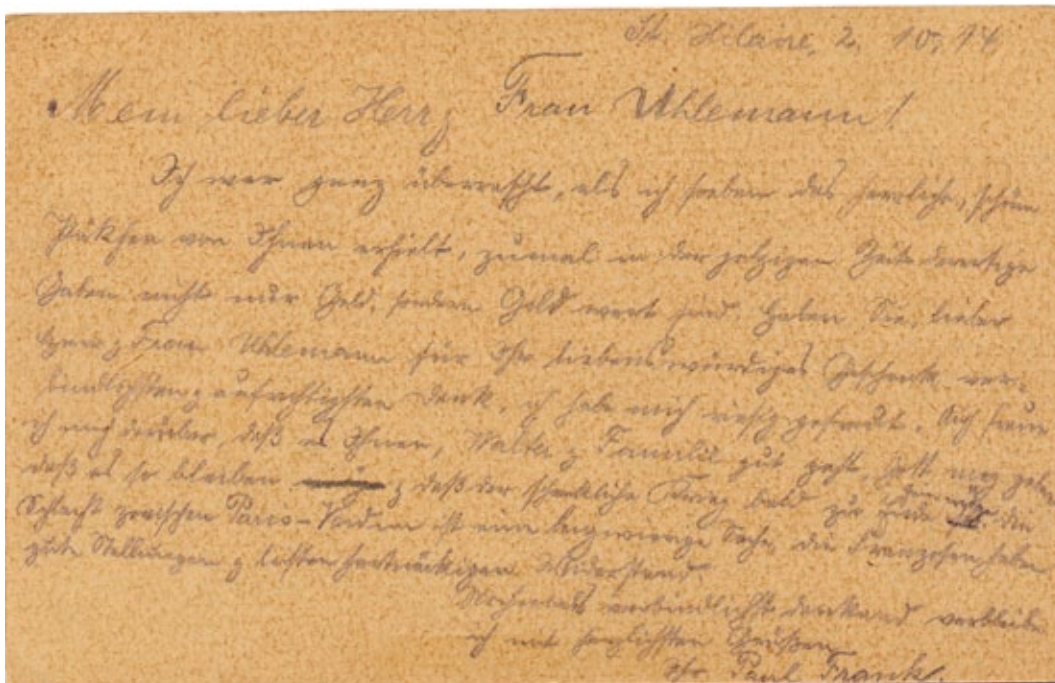 St. Hilaire, 2. 10. 14
Mein lieber Herr & Frau Uhlemann!
Ich war ganz überrascht, als ich soeben das herrliche, schöne
Päckchen von Ihnen erhielt, zumal in der jetzigen Zeit derartige
Gaben nicht nur Geld, sondern Gold wert sind. Haben Sie, lieber
Herr & Frau Uhlemann für Ihr liebenswürdiges Geschenk ver-
bindlichsten & aufrichtigsten Dank, ich habe mich riesig gefreut. Auch freue
ich mich darüber, daß es Ihnen, Walter & Familie gut geht, Gott mag geben
daß es so bleiben & daß der schreckliche Krieg bald zu Ende die
Schlacht zwischen Paris-Verdun ist eine langwierige Sache, die Franzosen haben
gute Stellungen & leisten hartnäckigen Widerstand.
Nochmals verbindlichst dankend verbleibe
ich mit herzlichsten Grüßen
Ihr Paul Frank.